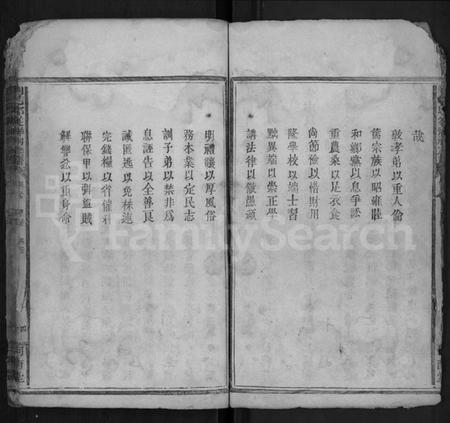 哉
敦孝弟以重人倫
篤宗族以昭雍睦
和鄉黨以息爭訟
重農桑以足衣食
尚節儉以惜財用
隆學校以端士習
黜異端以崇正學
講法律以儆愚頑
明禮讓以厚風俗
務本業以定民志
訓子弟以禁非為
息誣告以全善良
誡匿逃以免株連
完錢糧以省催科
聯保甲以弭盜賊
解讐忿以重身命
FamilySearch